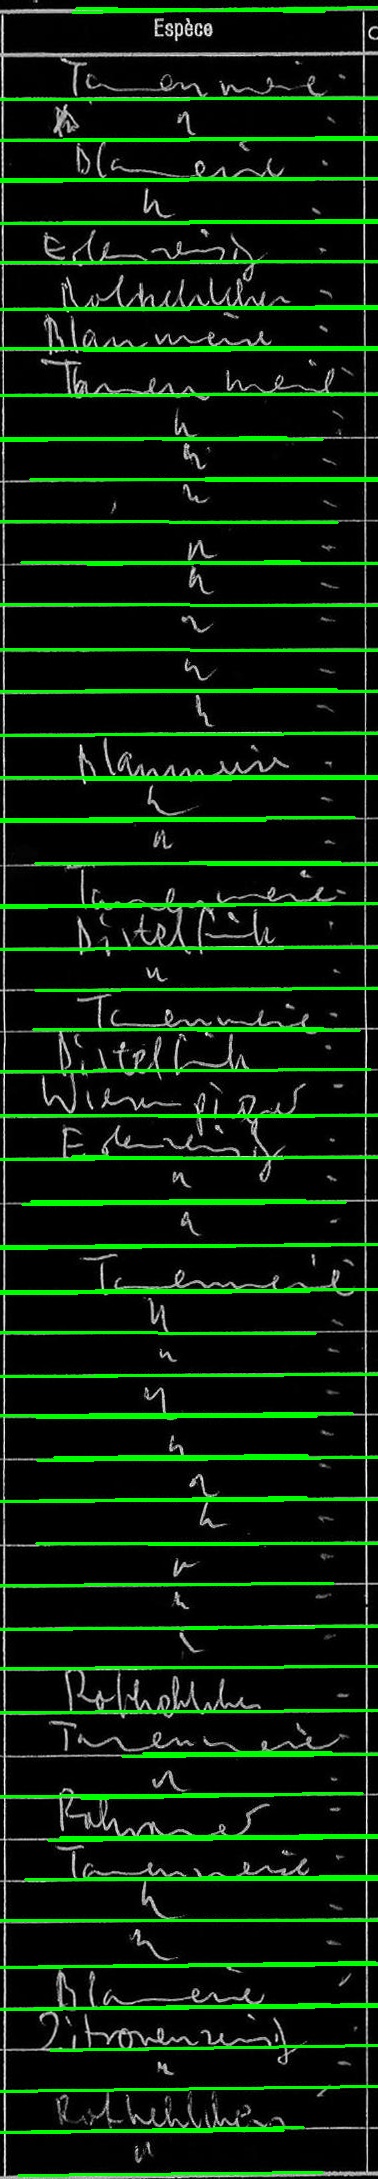 Espèce
Tanenmeise
"
Blameise
"
Erlenzeisig
Rotkehlchen
Blaumeise
Tanenmeise
"
"
"
"
"
"
"
"
Blaumeise
"
"
Tanenmeise
Distelfink
"
Tanenmeise
Distelfink
Wiesenpieper
Erlenzeisig
"
"
Tanenmeise
"
"
"
"
"
"
"
"
"
Rotkehlchen
Tanenmeise
"
Tanenmeise
"
"
Blameise
Zitronenzeisig
"
Rotkehlchen
"